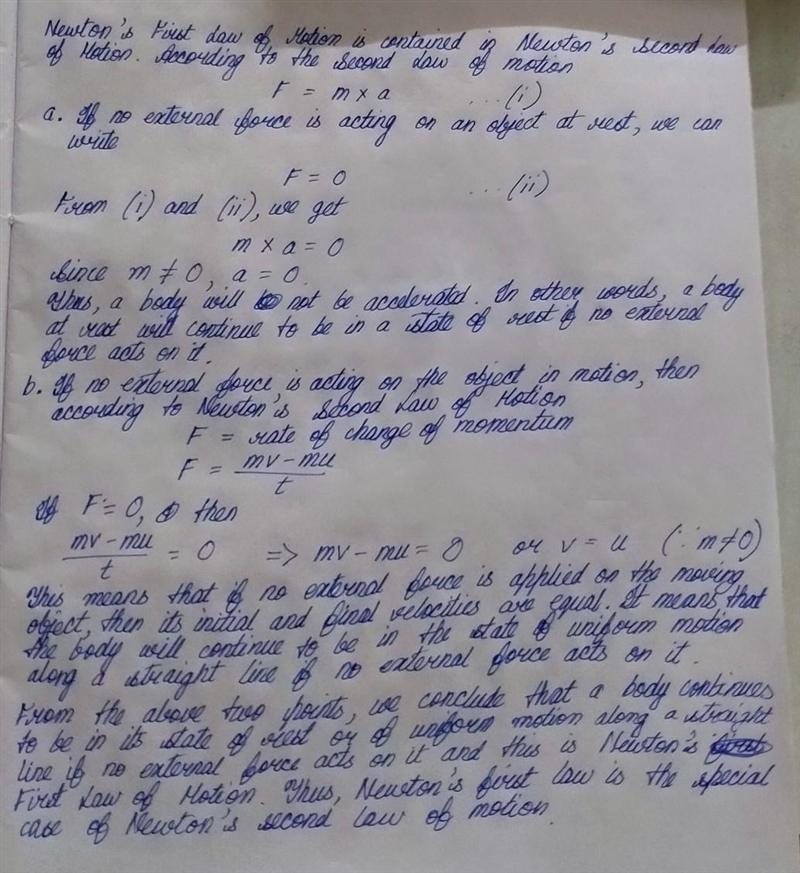 Newton's First Law of Motion is contained in Newton's Second Law
of Motion. According to the Second Law of motion
F = m x a ...(i)
a. If no external force is acting on an object at rest, we can
write
F = 0 ...(ii)
From (i) and (ii), we get
m x a = 0
Since m ≠ 0, a = 0
Thus, a body will not be accelerated. In other words, a body
at rest will continue to be in a state of rest if no external
force acts on it.
b. If no external force is acting on the object in motion, then
according to Newton's Second Law of Motion
F = rate of change of momentum
F = (mv - mu)/t
If F = 0, then
(mv - mu)/t = 0 => mv - mu = 0 or v = u (∵ m ≠ 0)
This means that if no external force is applied on the moving
object, then its initial and final velocities are equal. It means that
the body will continue to be in the state of uniform motion
along a straight line if no external force acts on it.
From the above two points, we conclude that a body continues
to be in its state of rest or of uniform motion along a straight
line if no external force acts on it and this is Newton's
First Law of Motion. Thus, Newton's first law is the special
case of Newton's second law of motion.